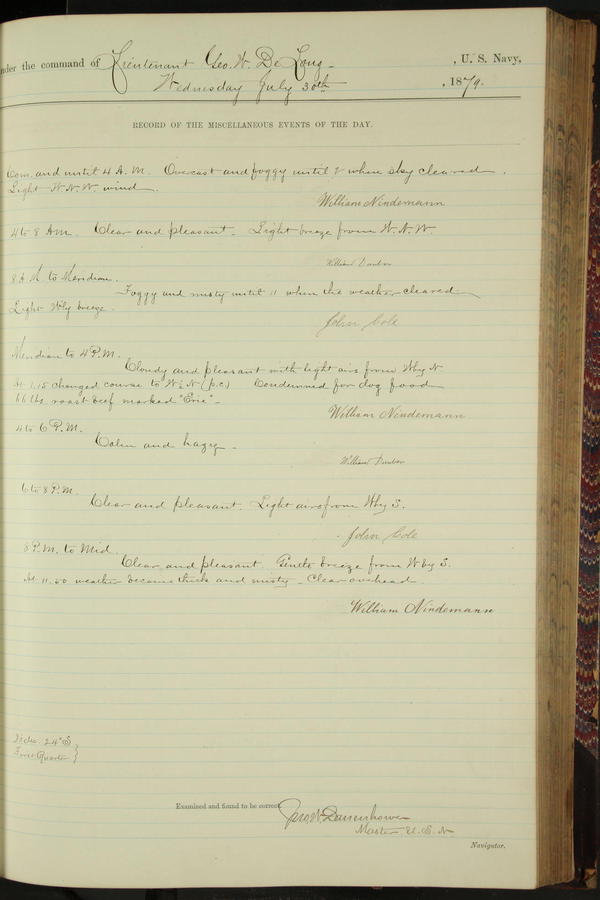 nder the command of Lieutenant Geo. W. De Long , U. S. Navy,
Wednesday July 30th , 1879.
RECORD OF THE MISCELLANEOUS EVENTS OF THE DAY.
Com. and until 4 A. M. Overcast and foggy until 2 when sky cleared.
Light W.N.W. wind.
William Nindemann
4 to 8 A.M. Clear and pleasant. Light breeze from W.N.W
William Dunbar
8 A.M. to Meridian.
Foggy and misty until 11 when the weather cleared.
Light Wly breeze.
John Cole
Meridian to 4 P.M.
Cloudy and pleasant with light airs from W by N
At 1.15 changed course to W½N (p.c.) Condemned for dog food
66 lbs. roast beef marked "Erie".
William Nindemann
4 to 6 P.M.
Calm and hazy.
William Dunbar
6 to 8 P.M.
Clear and pleasant. Light airs from W by S.
John Cole
8 P.M. to Mid.
Clear and pleasant. Gentle breeze from W by S.
At 11.50 weather became thick and misty. Clear overhead.
William Nindemann
24° S
First Quarter }
Examined and found to be correct.
Jno. W. Danenhower
Master, U.S.N.
Navigator.